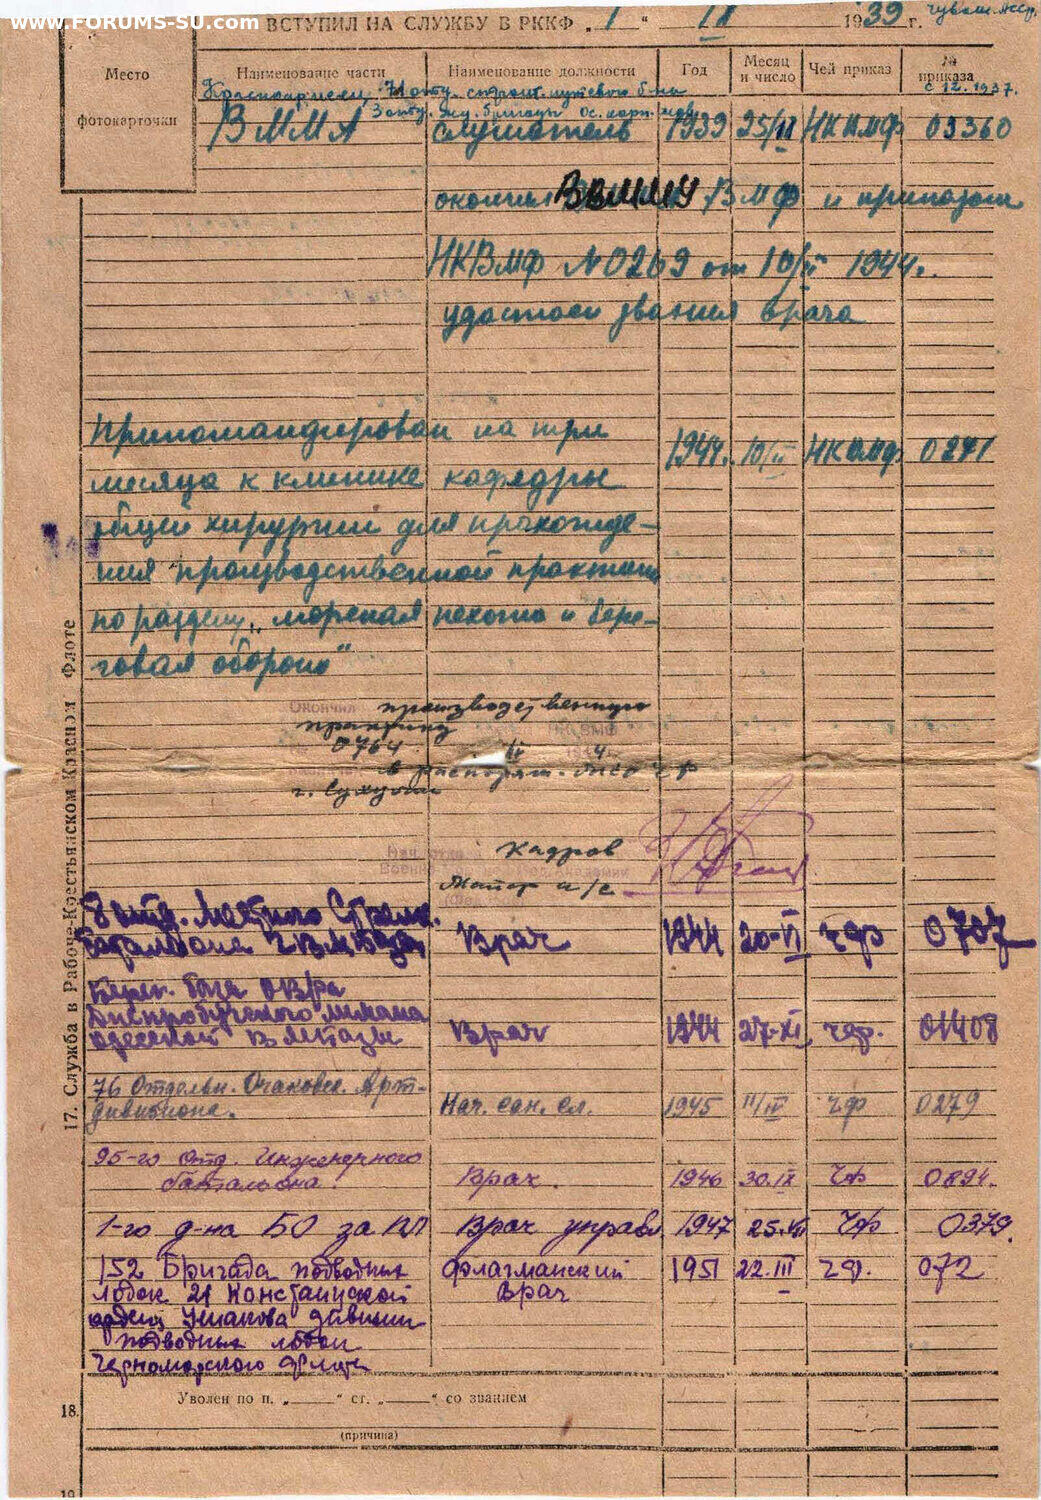 www.FORUMS-SU.com
ВСТУПИЛ НА СЛУЖБУ В РККФ „1“ IX 1939 г.
Место
фотокарточки
Наименование части
Наименование должности
Год
Месяц и число
Чей приказ
№ приказа
с 12.1937.
ВММА слушатель 1939 25/II НКВМФ 03360
окончил ВВММУ ВМФ и приказом
НКВМФ №0269 от 10/II 1944г.
удостоен звания врача
Прикомандирован на три
месяца к клинике кафедры 1944. 10/II НКВМФ 0241
общей хирургии для прохожде-
ния производственной практики
по разделу „морская пехота и бере-
говая оборона"
Окончил производственную
практику
0764
в распоряж.
г. Сухуми
Нач. отдела кадров
Майор и/с
8 отд. Местного Стрелк.
батальона Врач 1944 20-VI ЧФ 0707
Берег. база ОВРа
Днепробугского лимана
Одесской ВМбазы Врач 1944 27-XI ЧФ. 01408
76 Отдельн. Очаковск. Арт-
дивизиона. Нач. сан. сл. 1945 11/IV ЧФ 0279
95-го отд. Инженерного
батальона. Врач. 1946 30.IX ЧФ 0894.
1-го д-на БО за ВП Врач управл. 1947 25.VII ЧФ 0379.
152 Бригада подводных Флагманский 1951 22.III ЧФ. 072
лодок 21 Констанцской Врач
ордена Ушакова дивизии
подводных лодок
Черноморского флота
17. Служба в Рабоче-Крестьянском Красном Флоте
18. Уволен по п. „ “ ст. „ “ со званием
(причина)
19